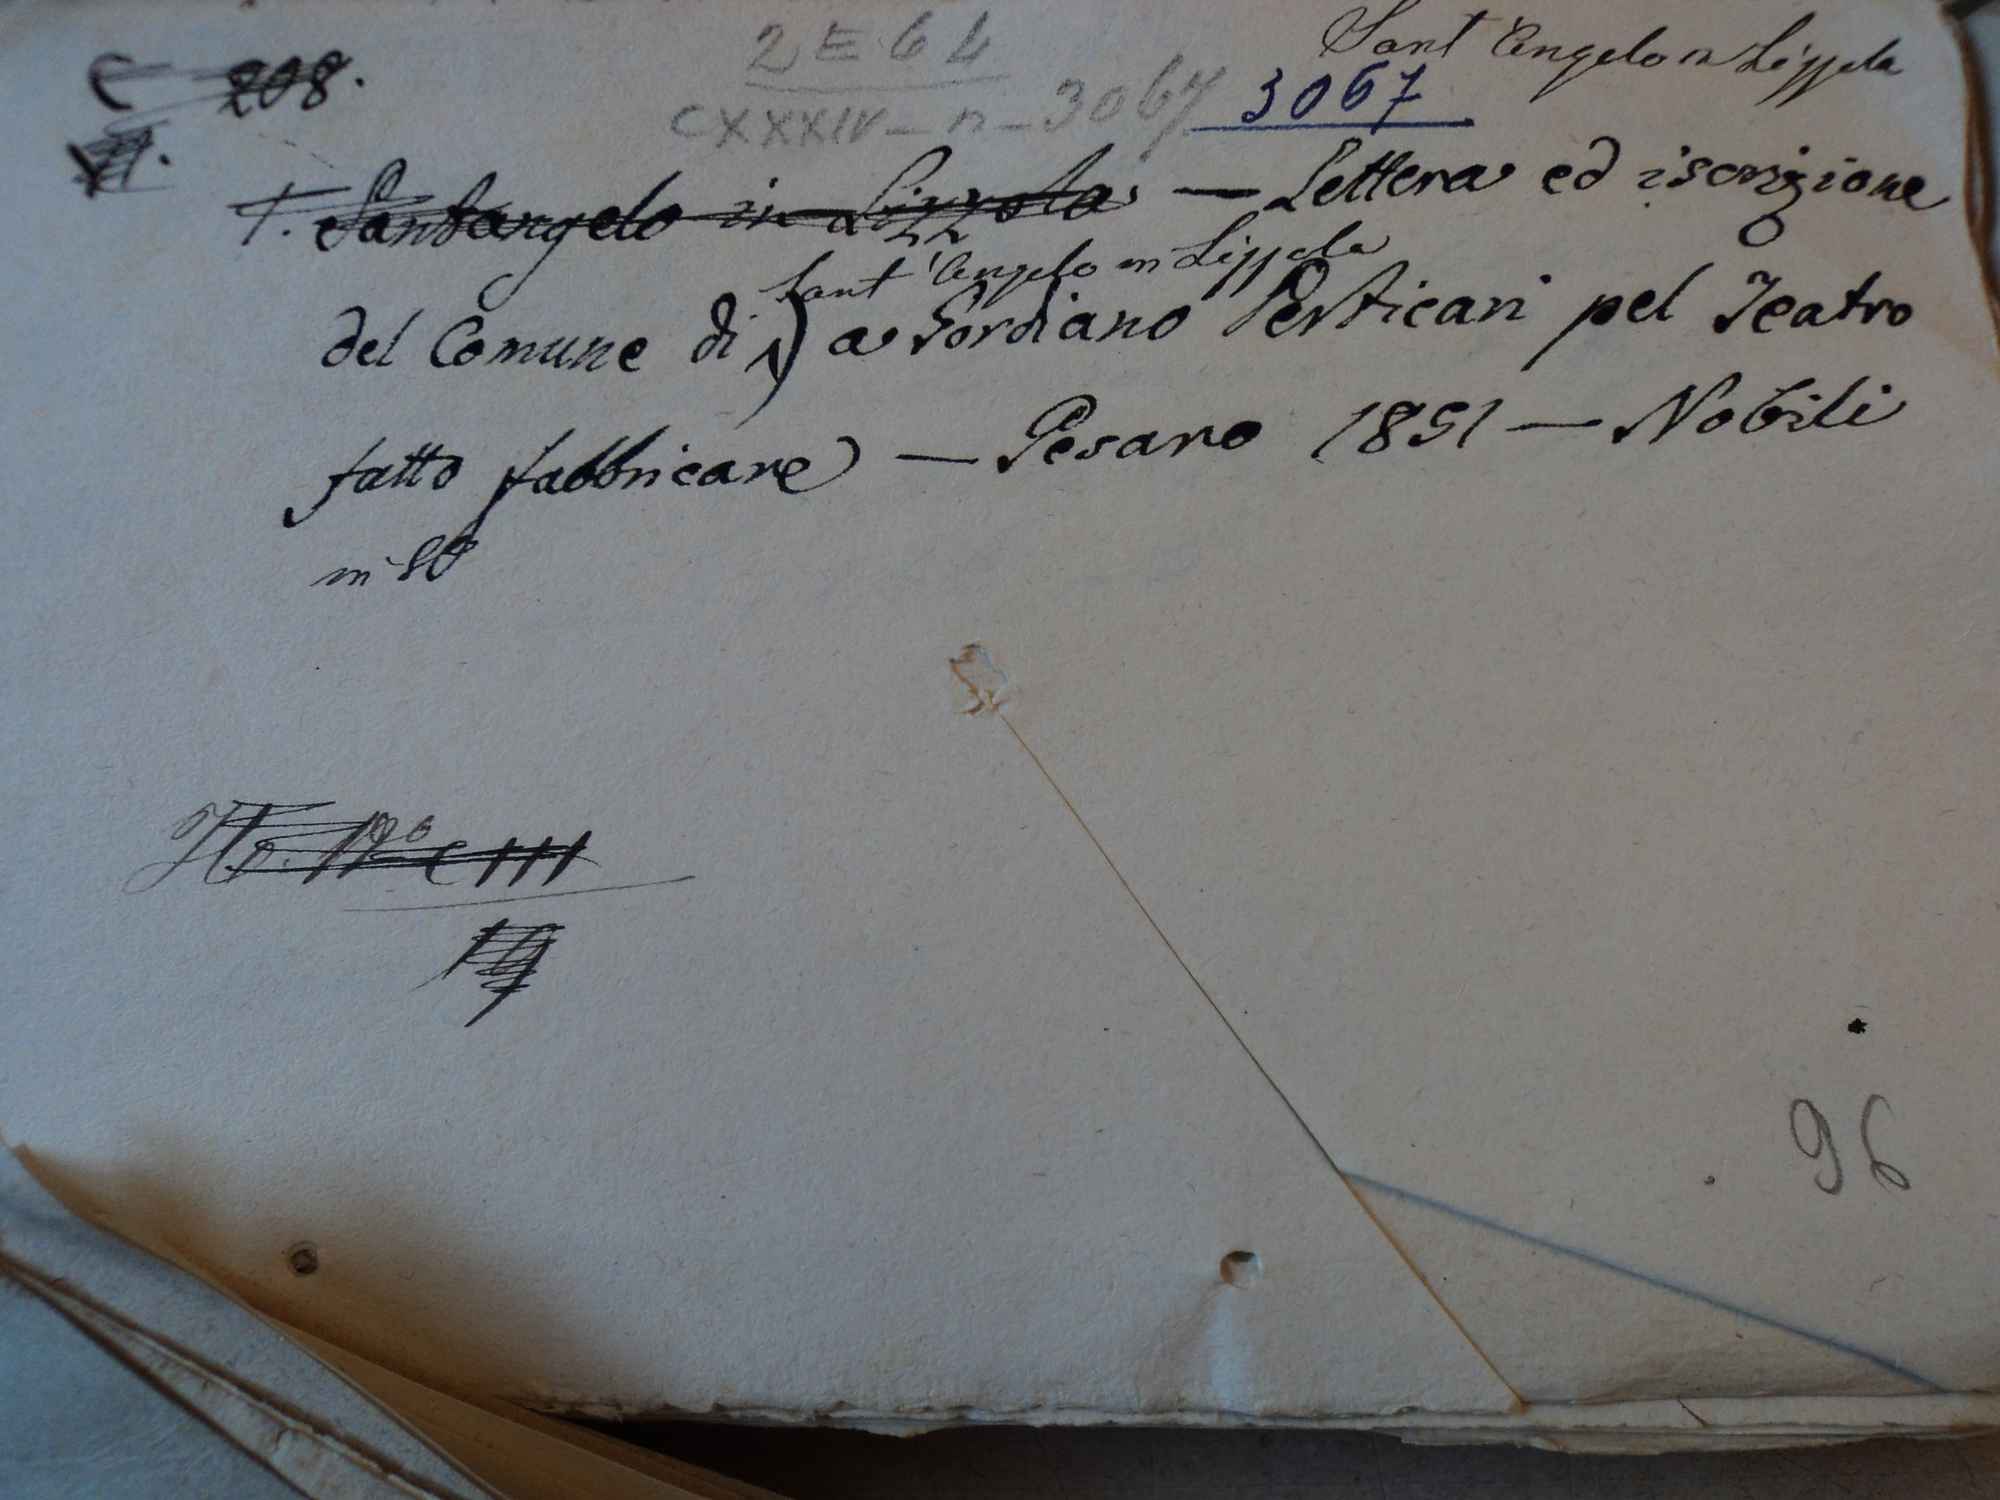 2 E 64
Sant'Angelo in Lizzola
C 208.
CXXXIV - n - 3067 3067
T. Santangelo in Lizzola — Lettera ed iscrizione
Sant'Angelo in Lizzola
del Comune di a Gordiano Perticari pel Teatro
fatto fabbricare — Pesaro 1851 — Nobili
in 8º
96